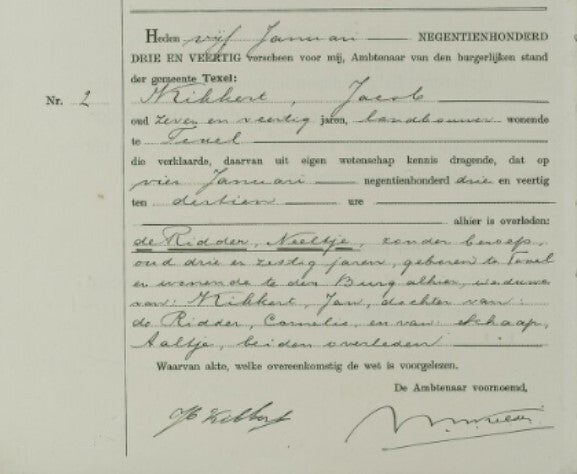 Heden vijf Januari NEGENTIENHONDERD
DRIE EN VEERTIG verscheen voor mij, Ambtenaar van den burgerlijken stand
der gemeente Texel:
Nr. 2
Kikkert, Jacob
oud zeven en veertig jaren, landbouwer wonende
te Texel
die verklaarde, daarvan uit eigen wetenschap kennis dragende, dat op
vier Januari negentienhonderd drie en veertig
ten dertien ure
alhier is overleden:
de Ridder, Neeltje, zonder beroep,
oud drie en zestig jaren, geboren te Texel
en wonende te den Burg alhier, weduwe
van: Kikkert, Jan, dochter van:
de Ridder, Cornelis, en van: Schaap,
Aaltje, beiden overleden
Waarvan akte, welke overeenkomstig de wet is voorgelezen.
De Ambtenaar voornoemd,
Kikkert